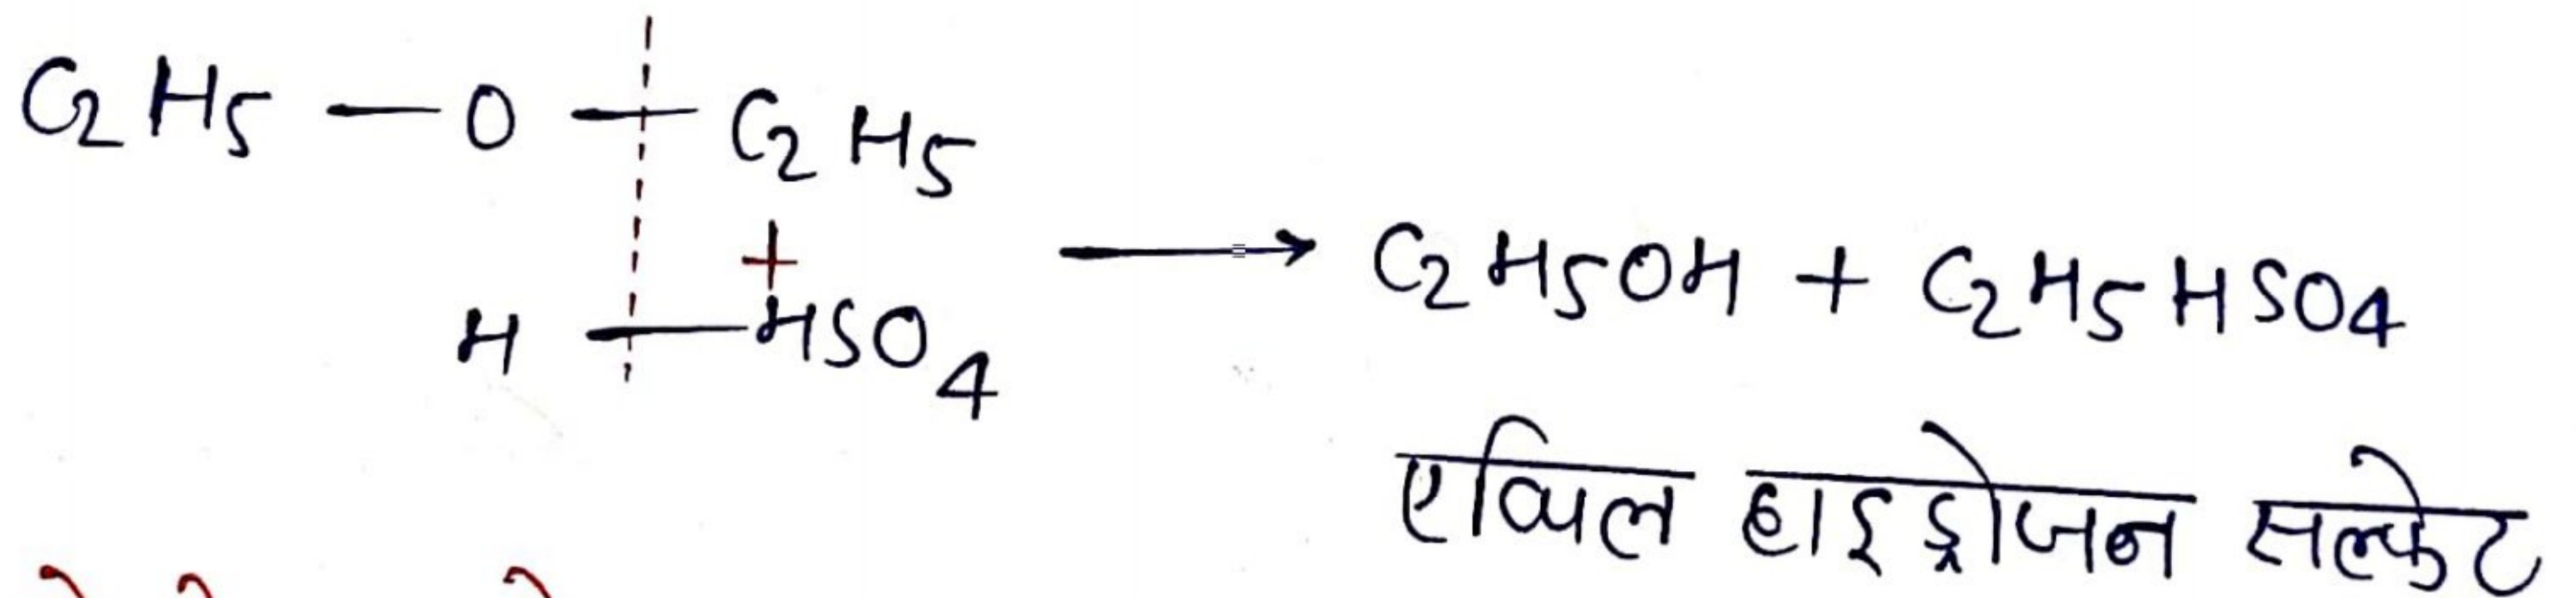 C₂H₅ — O — C₂H₅
+
H — HSO₄
⟶ C₂H₅OH + C₂H₅HSO₄
एथिल हाइड्रोजन सल्फेट